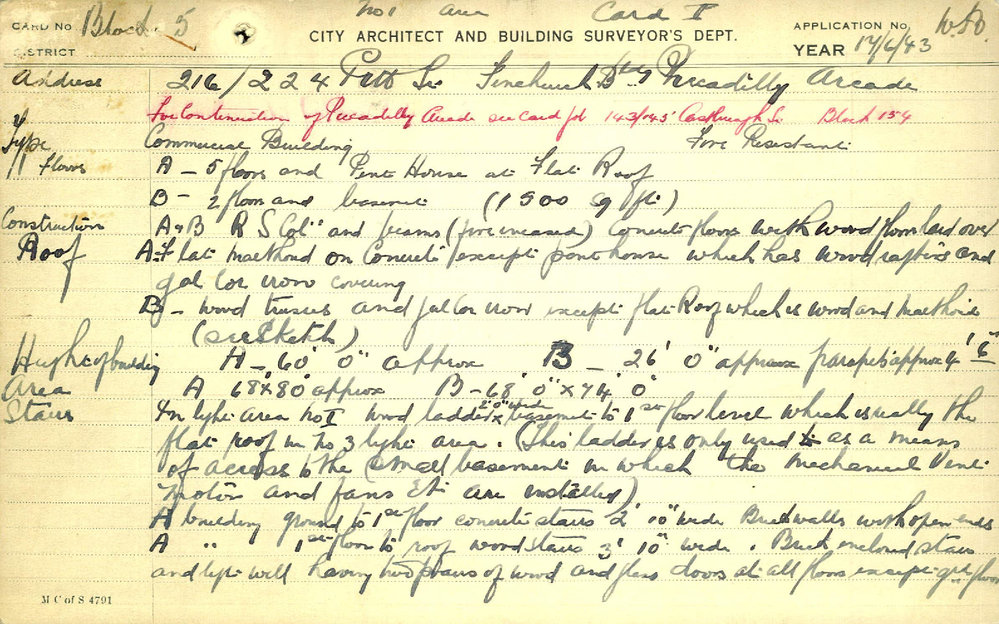 No 1 Area Card II
CARD No Block 5 CITY ARCHITECT AND BUILDING SURVEYOR'S DEPT. APPLICATION No.
DISTRICT YEAR 17/6/43
Address 216/224 Pitt St Piccadilly Arcade
For Continuation of Piccadilly Arcade see card for 143/145 Castlereagh St Block 154
Type Commercial Building Fire Resistant
Floors A - 5 floors and Pent House at Flat Roof
B - 2 floors and basement (1500 sq ft)
Construction A & B R S Cols and beams (fire incased) Concrete floors with wood floor laid over
Roof A - Flat malthoid on Concrete except pent house which has wood rafters and
gal cor iron covering
B - wood trusses and gal cor iron except flat Roof which is wood and malthoid
(see sketch)
Height of building A - 60' 0" approx B - 26' 0" approx parapet approx 4' 6"
Area A 68' x 80' approx B - 68' 0" x 74' 0"
Stairs In light area No I wood ladder 2' 0" wide basement to 1st floor level which is really the
flat roof in No 3 light area. (This ladder is only used as a means
of access to the small basement in which the mechanical Vent
motors and fans Etc are installed)
A building ground to 1st floor concrete stairs 2' 10" wide Brick walls with open ends
A " 1st floor to roof wood stairs 3' 10" wide. Brick enclosed stairs
and light well having two pairs of wood and glass doors at all floors except grd floor
M C of S 4791